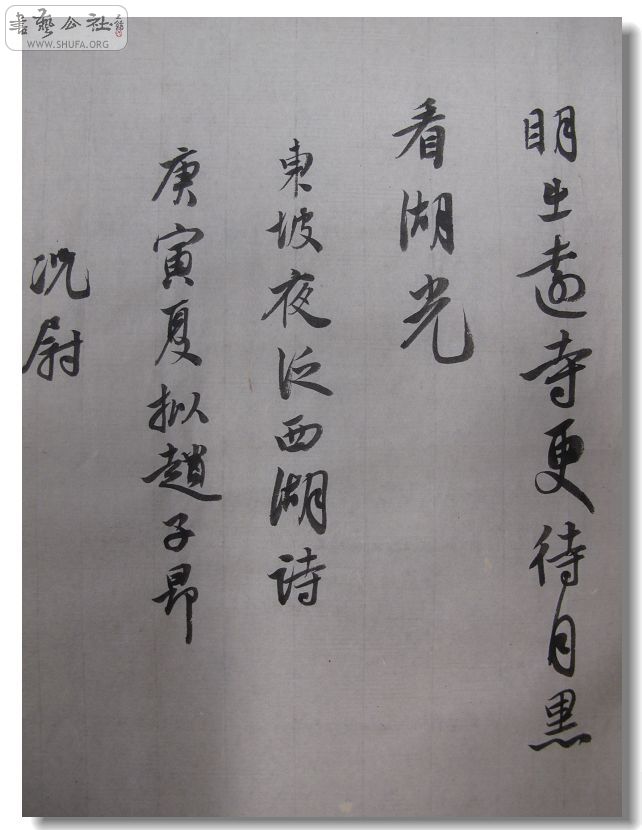 書藝公社
WWW.SHUFA.ORG
明出遠寺更待月黑
看湖光
東坡夜泛西湖詩
庚寅夏拟趙子昂
况尉